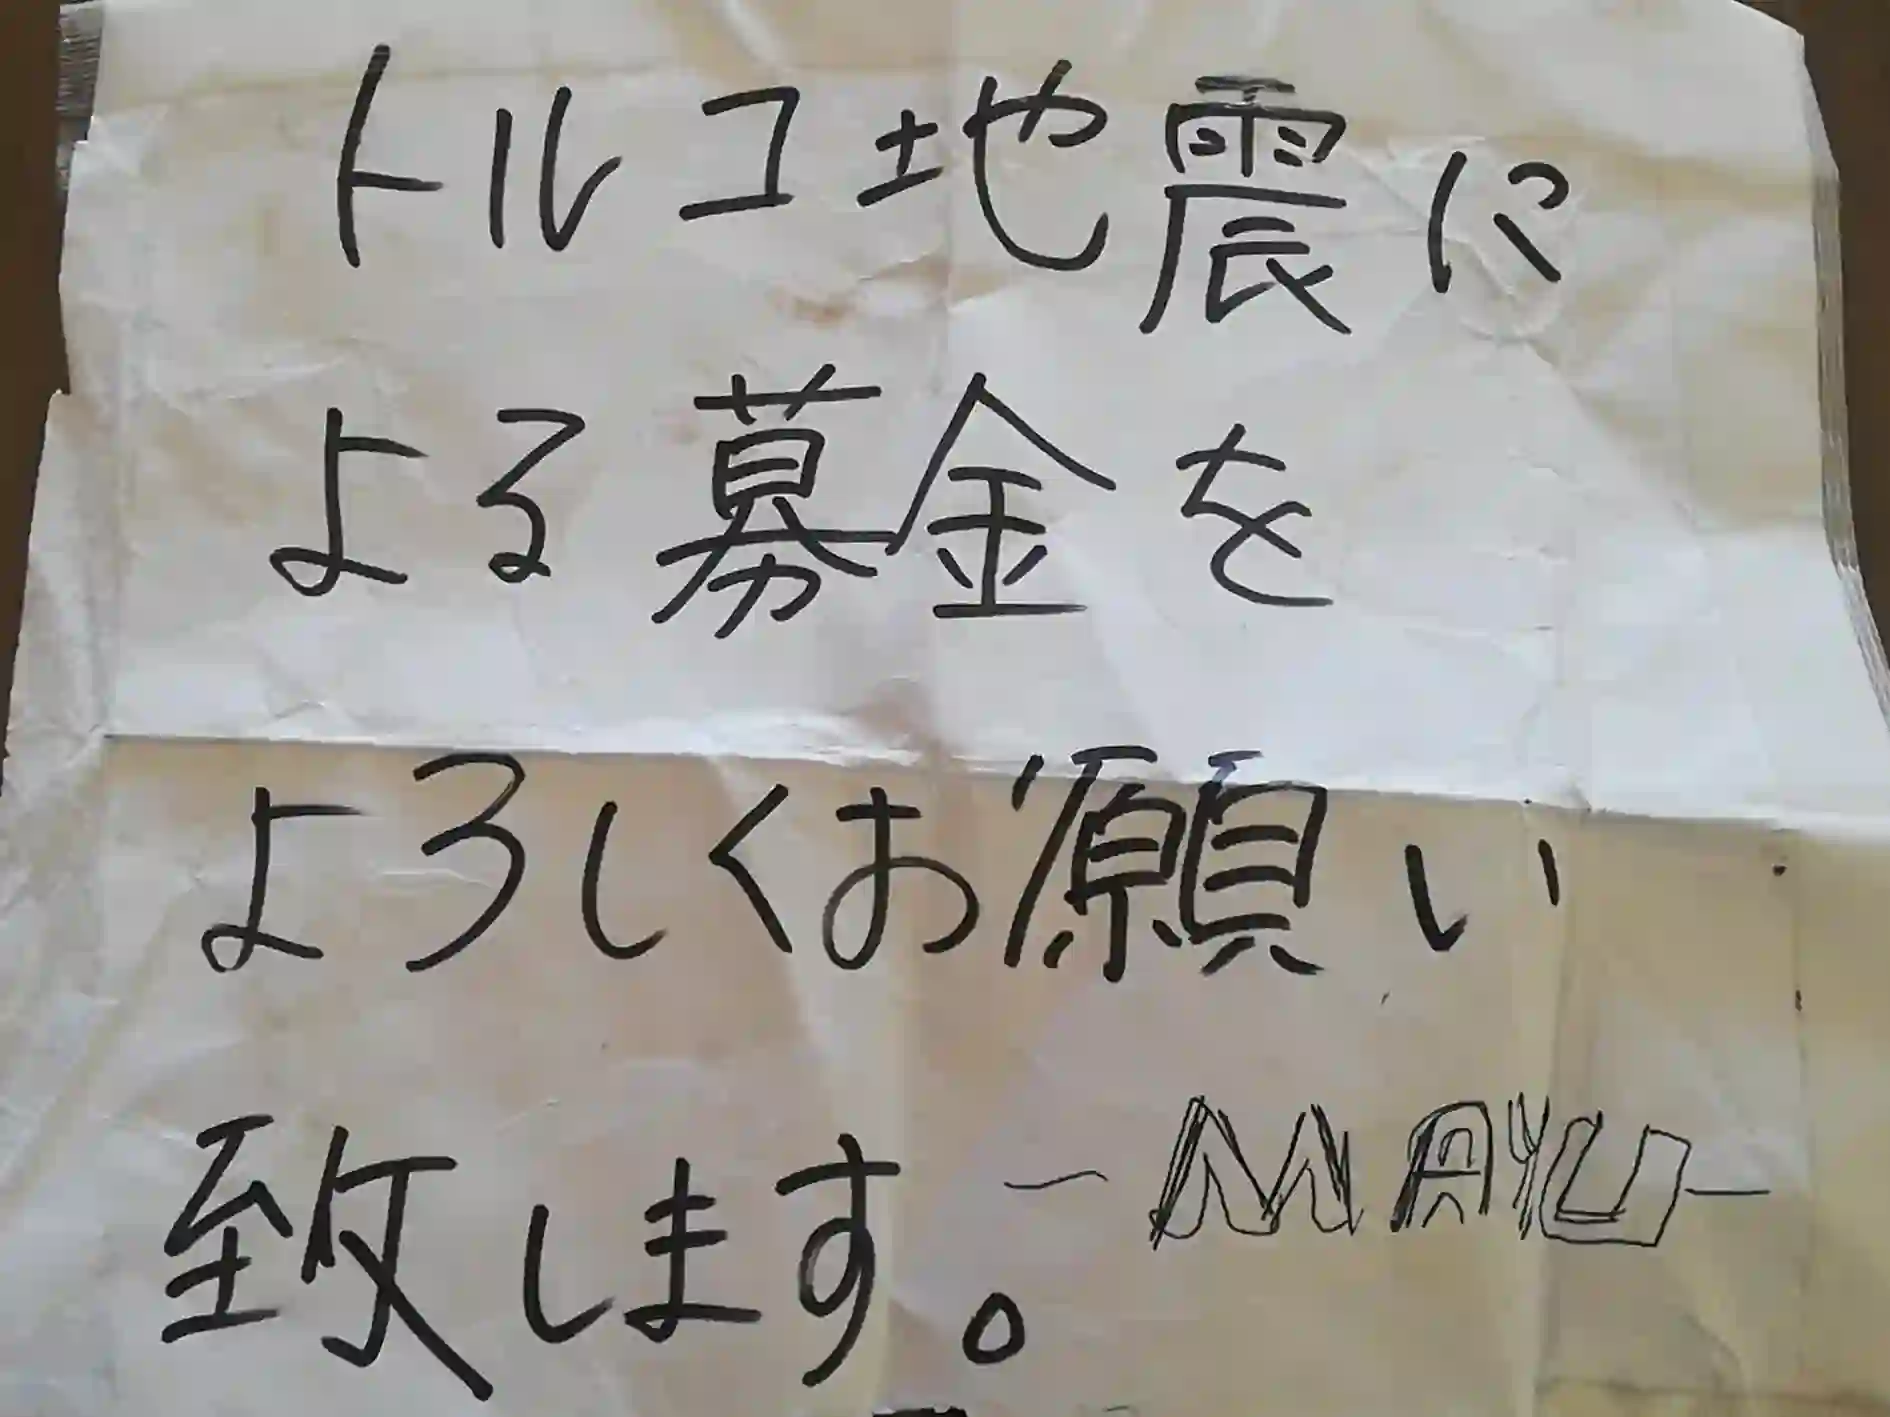 トルコ地震に
よる募金を
よろしくお願い
致します。
- MAYU -